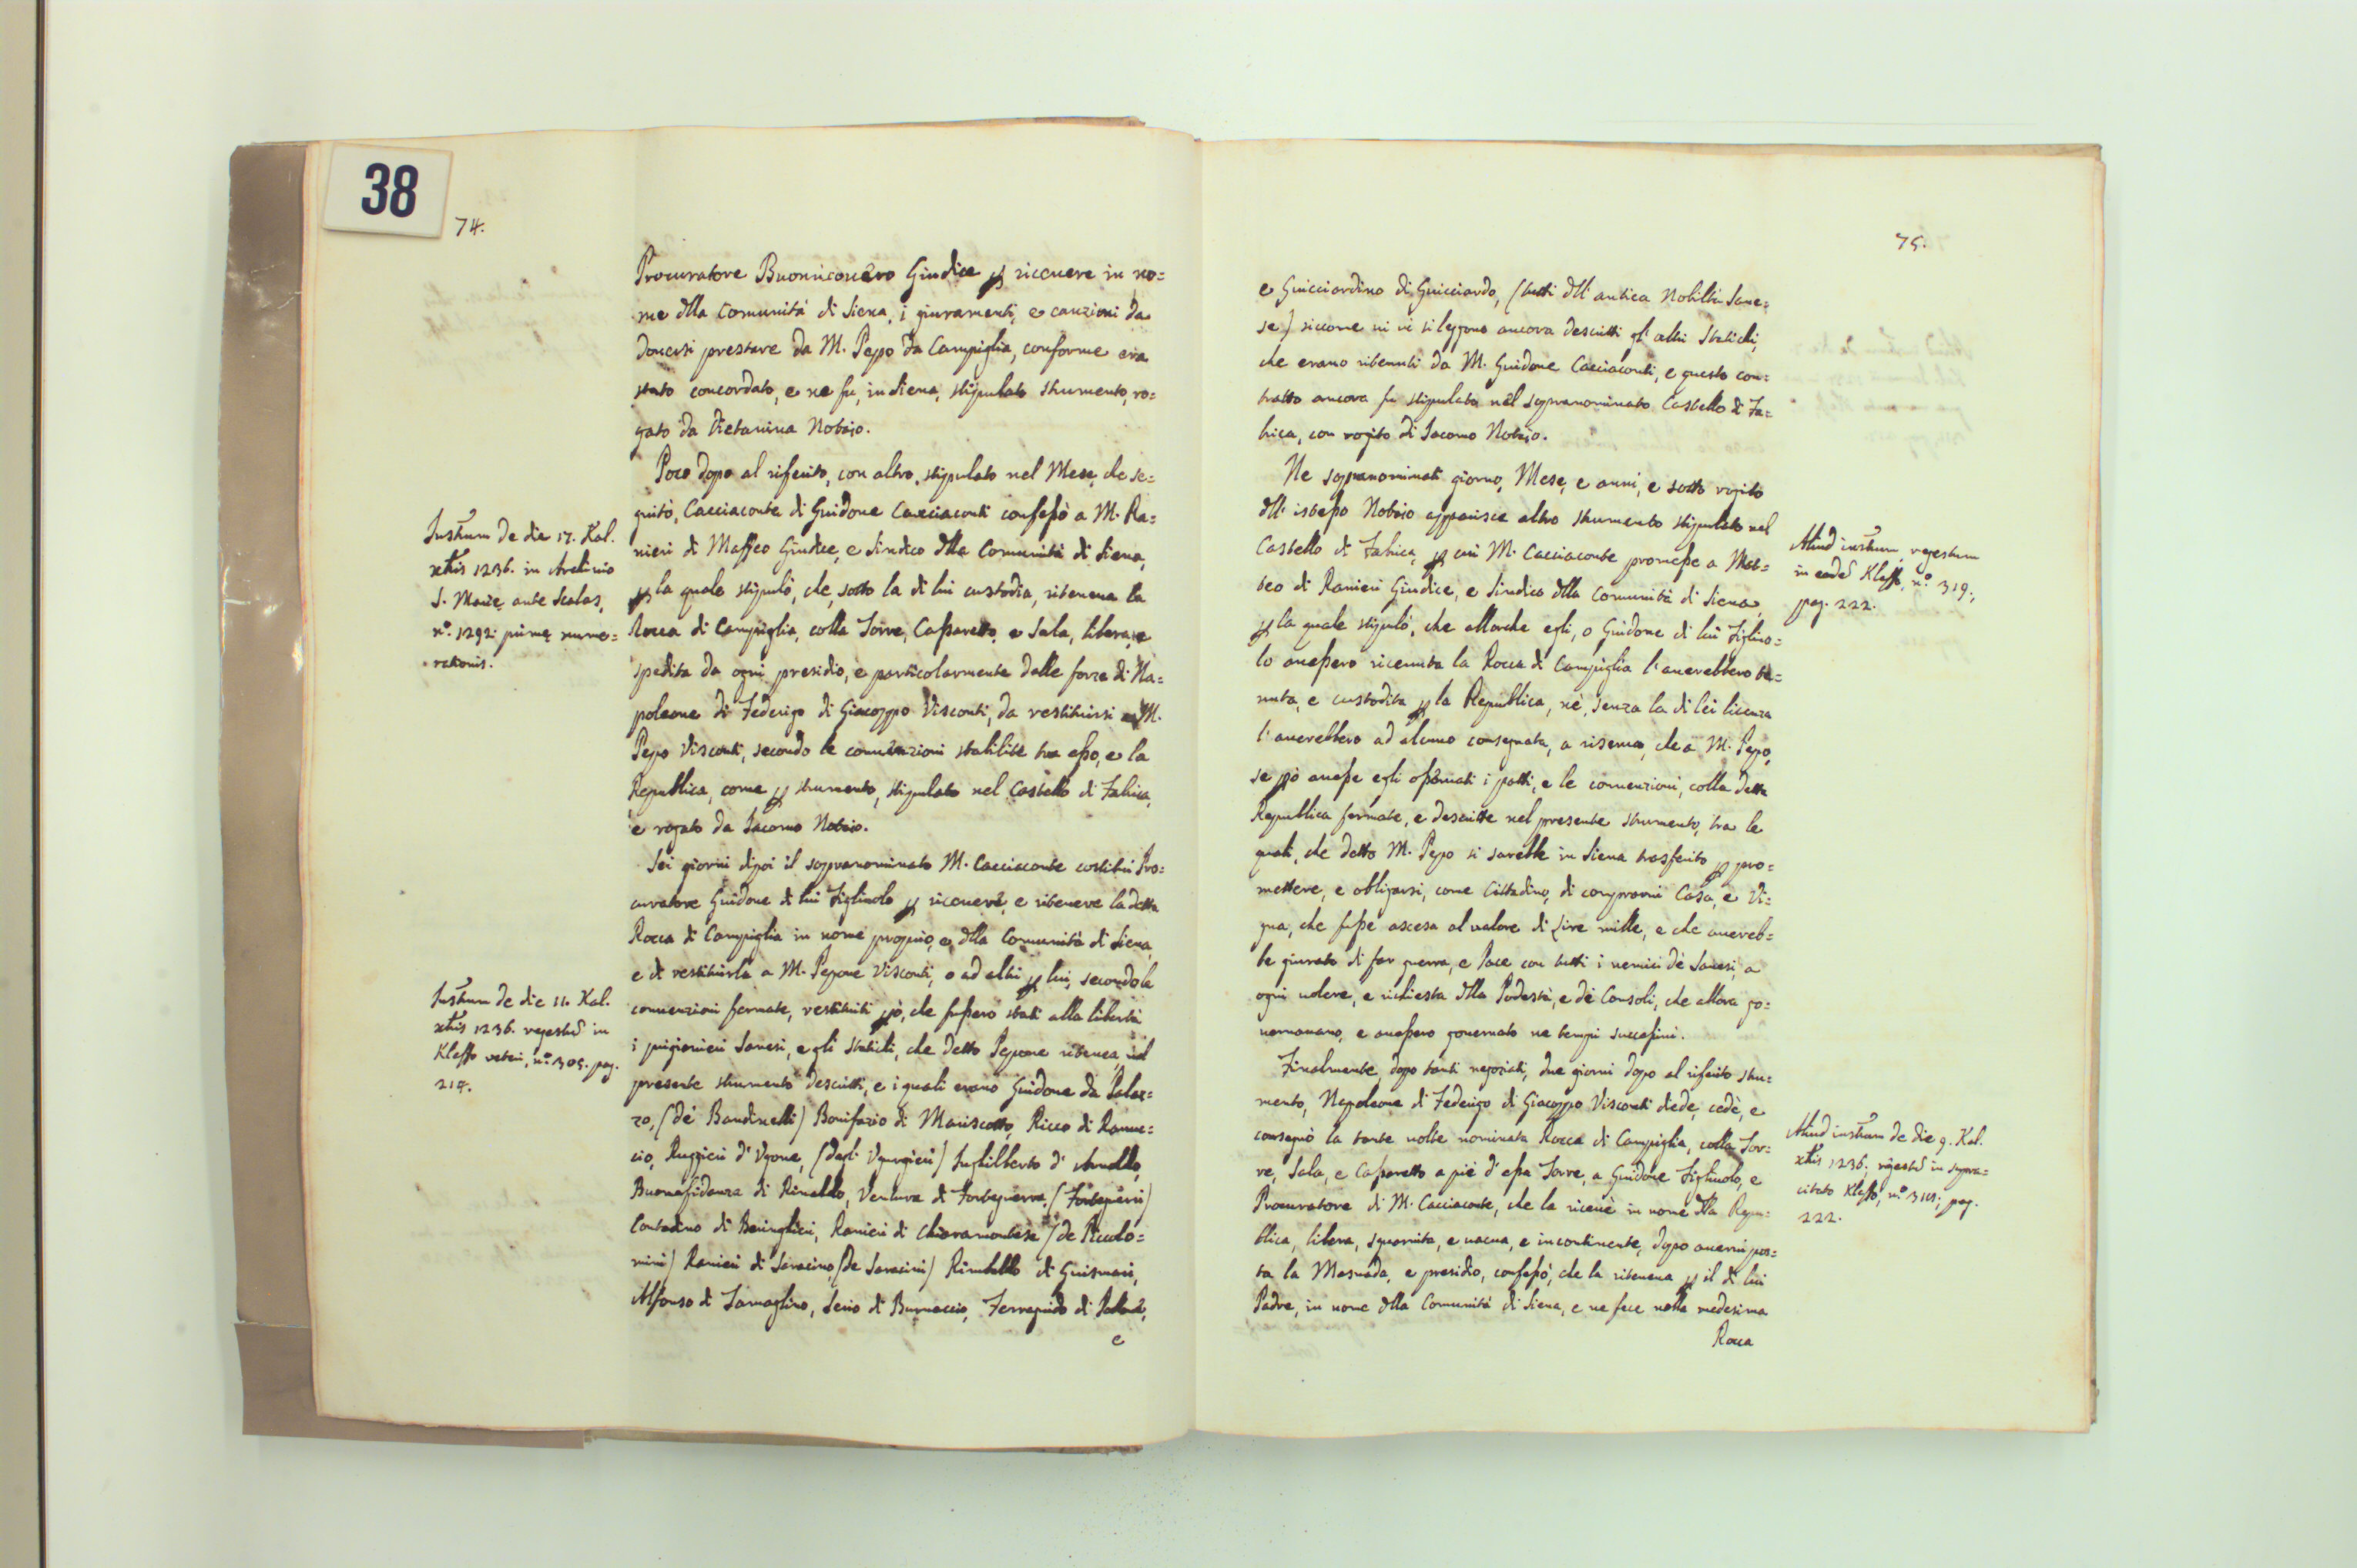 38
74.
Procuratore Buonricouero Giudice p riceuere in no=
me dlla Comunità di Siena, i giuramenti, e cauzioni da
douersi prestare da M. Pepo da Campiglia, conforme era
stato concordato, e ne fu, in Siena, stipulato strumento, ro=
gato da Notaio.
Poco dopo al riferito, con altro, stipulato nel Mese, che se=
guitò, Cacciaconte di Guidone Cacciaconti confessò a M. Ra=
nieri di Maffeo Giudice, e Sindico dlla Comunità di Siena,
p la quale stipulò, che, sotto la di lui custodia, riteneua la
Rocca di Campiglia, colla Torre, Cassaretto, e Sala, libera, e
spedita da ogni presidio, e particolarmente dalle forze di Na=
poleone di Federigo di Giacoppo Visconti, da restituirsi a M.
Pepo Visconti, secondo le conuenzioni stabilite tra esso, e la
Republica, come p strumento, stipulato nel Castello di Fabrica,
e rogato da Iacomo Notaio.
Sei giorni dipoi il sopranominato M. Cacciaconte costituì Pro=
curatore Guidone di lui Figliuolo p riceuere, e ritenere la detta
Rocca di Campiglia in nome proprio, e dlla Comunità di Siena,
e di restituirla a M. Pepone Visconti, o ad altri p lui, secondo le
conuenzioni fermate, restituiti pò, che fussero stati alla libertà
i prigionieri Sanesi, e gli Statichi, che detto Pepone riteneua, nel
presente strumento descritti, e i quali erano Guidone da Palaz=
zo, (de' Bandinelli) Bonifazio di Mariscotto, Ricco di Ranuc=
cio, Ruggieri d' Vgone, (degli Vgurgieri) Inghilberto d'
Buonafidanza di Rinaldo, Ventura di Forteguerra, (Forteguerri)
Contadino di Beringhieri, Ranieri di Chiaramontese (de Piccolo=
mini) Ranieri di Saracino (de Saracini) di
Alfonso di Serio di Burnaccio, di
e
Instrum de die 17. Kal.
xbris 1236. in Archiuio
S. Marię ante Scalas,
n.º 1292. primę nume=
rationis.
Instrum de die 11. Kal.
xbris 1236. regestũ in
Kleffo veteri, n.º 305. pag.
217.
75.
e Guicciardino di Guicciardo, (tutti dll' antica Nobiltà Sane=
se) siccome ui si leggono ancora descritti gl' altri Statichi,
che erano ritenuti da M. Guidone Cacciaconti, e questo con=
tratto ancora fu stipulato nel sopranominato Castello di Fa=
brica, con rogito di Iacomo Notaio.
Ne sopranominati giorno, Mese, e anni, e sotto rogito
dll' istesso Notaio apparisce altro strumento stipulato nel
Castello di Fabrica, p cui M. Cacciaconte promesse a Mat=
teo di Ranieri Giudice, e Sindico dlla Comunità di Siena
p la quale stipulò, che allorche egli, o Guidone di lui Figliuo=
lo auessero riceuuta la Rocca di Campiglia l' auerebbero te=
nuta, e custodita p la Republica, nè, senza la di lei licenza
l' auerebbero ad alcuno consegnata, a riserua, che a M. Pepo,
se pò auesse egli osseruati i patti, e le conuenzioni, colla detta
Republica fermate, e descritte nel presente strumento, tra le
quali, che detto M. Pepo si sarebbe in Siena trasferito p pro=
mettere, e obligarsi, come Cittadino, di comprarui Casa, e Vi=
gna, che fusse ascesa al valore di Lire mille, e che auereb=
be giurato di far guerra, e Pace con tutti i nemici dè Sanesi, a
ogni uolere, e richiesta dlla Podestà, e dè Consoli, che allora go=
uernauano, e auessero gouernato ne tempi successiui.
Finalmente, dopo tanti negoziati, due giorni dopo al riferito stru=
mento, Napoleone di Federigo di Giacoppo Visconti diede, cedè, e
consegnò la tante uolte nominata Rocca di Campiglia, colla Tor=
re, Sala, e Cassaretto a piè d' essa Torre, a Guidone Figliuolo, e
Procuratore di M. Cacciaconte, che la riceuè in nome dlla Repu=
blica, libera, sguarnita, e uacua, e incontinente, dopo auerui pos=
ta la Masnada, e presidio, confessò, che la riteneua p il di lui
Padre, in nome dlla Comunità di Siena, e ne fece nella medesima
Rocca
Aliud instrum, regestum
in eadẽ Kleffo, n.º 319.,
pag. 222.
Aliud instrum de die 9. Kal.
xbris 1236. regestũ in supra=
citato Kleffo, n.º pag.
222.